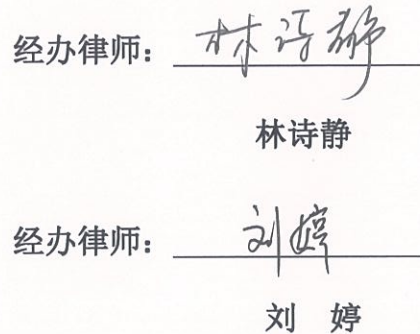 经办律师：林诗静
林诗静
经办律师：刘婷
刘 婷